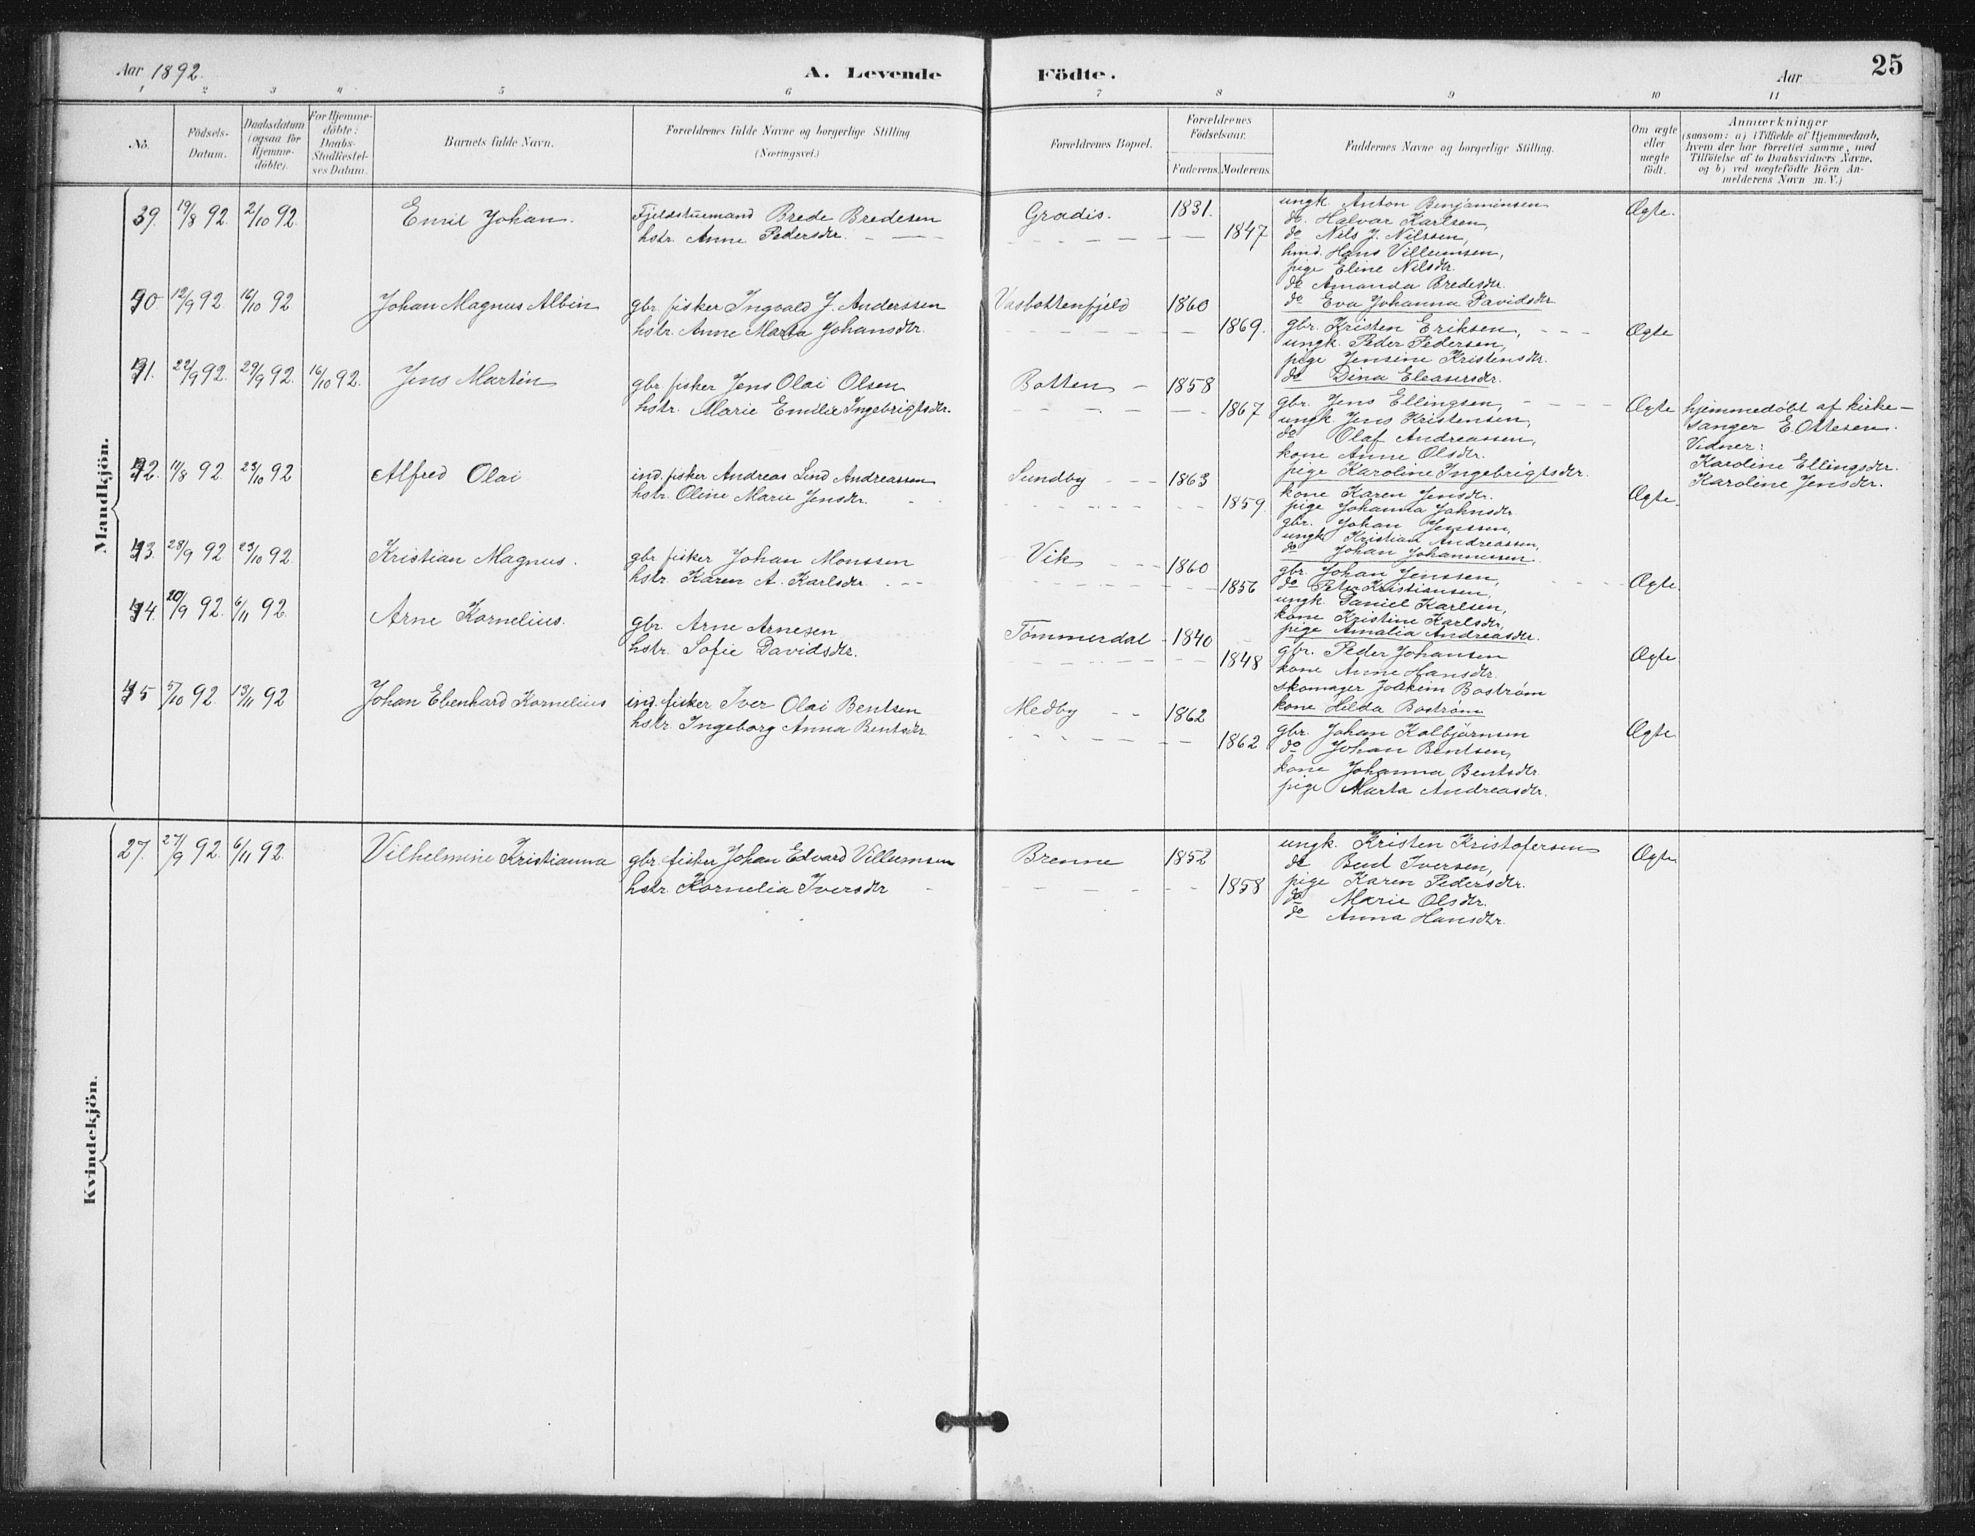 Aar 1892.
A. Levende Födte.
Aar
25
1 2 3 4 5 6 7 8 9 10 11
No.
Födsels-Datum.
Daabsdatum (ogsaa for Hjemme-döbte).
For Hjemme-döbte: Daabs-Stadfæstel-ses Datum.
Barnets fulde Navn.
Forældrenes fulde Navne og borgerlige Stilling
(Næringsvei.)
Forældrenes Bopæl.
Forældrenes Födselsaar.
Faderens. Moderens.
Faddernes Navne og borgerlige Stilling.
Om ægte eller uægte födt.
Anmærkninger
(saasom: a) i Tilfælde af Hjemmedaab,
hvem der har forrettet samme, med
Tilföielse af to Daabsvidners Navne.
og b) ved uægtefödte Börn An-
melderens Navn m. V.)
Mandkjön.
39. 19/8 92 2/10 92. Emil Johan. Fjeldstuemand Brede Bredesen Gradis. 1831. Ægte.
hstr. Anne Pedersdtr. 1847
ungk. Anton Benjaminsen
do. Halvar Karlsen,
do Nils J. Nilssen,
hmd. Hans Villumsen,
pige Eline Nilsdtr.
do Amanda Bredesdtr.
do Eva Johanna Davidsdtr
40. 12/9 92. 16/10 92 Johan Magnus Albin gbr. fisker Ingvald J. Anderssen Vasbottenfjeld 1860
hstr. Anne Marta Johansdtr. 1869. Ægte
gbr. Kristen Eriksen,
ungk. Peder Pedersen,
pige Jensine Kristensdtr.
do Dina Eleasersdr.
41. 22/9 92. 29/9 92. 16/10 92. Jens Martin gbr. fisker Jens Olai Olsen Botten 1858
hstr. Marie Emilie Ingebrigtsdtr. 1867 Ægte
gbr. Jens Ellingsen,
ungk. Jens Kristensen,
do Olaf Andreassen,
kone Anne Olsdtr.
pige Karoline Ingebrigtsdtr.
hjemmedøbt af kirke-
sanger E. Ottesen.
Vidner:
Karoline Ellingsdtr.
Karoline Jensdtr.
42. 11/8 92 23/10 92 Alfred Olai ind. fisker Andreas Lind Andreassen Sundby 1863
hstr. Oline Marie Jensdtr. 1859 Ægte
kone Karen Jensdtr.
pige Johanna Jahnsdtr
gbr. Johan Jenssen,
ungk. Kristian Andreassen,
do Johan Johannessen.
43. 28/9 92 23/10 92. Kristian Magnus. gbr fisker Johan Monssen Vik 1860
hstr. Karen A. Karlsdtr. 1856 Ægte.
gbr. Johan Jenssen,
do Peter Kristiansen,
ungk. Daniel Karlsen,
kone Kristine Karlsdtr,
pige Amalia Andreasdtr.
44. 20/9 92. 6/11 92. Arne Kornelius. gbr. Arne Arnesen Tømmerdal 1840
hstr. Sofie Davidsdtr. 1848 Ægte
gbr. Peder Johansen
kone Anne Hansdtr.
skomager Joakim Bostrøm
kone Hilda Bostrøm
45 5/10 92 13/11 92 Johan Ebenhard Kornelius ind. fisker Iver Olai Bentsen Medby 1862
hstr. Ingeborg Anna Bentsdtr 1862 Ægte
gbr. Johan Kolbjørnsen
do Johan Bentsen,
kone Johanna Bentsdtr
pige Marta Andreasdtr.
Kvindekjön.
27. 27/9 92. 6/11 92. Vilhelmine Kristianna gbr. fisker Johan Edvard Villumsen Brenne 1852 Ægte
hstr. Kornelia Iversdtr 1858
ungk. Kristen Kristofersen
do Bent Iversen,
pige Karen Pedersdtr.
do Marie Olsdtr.
do Anna Hansdtr.